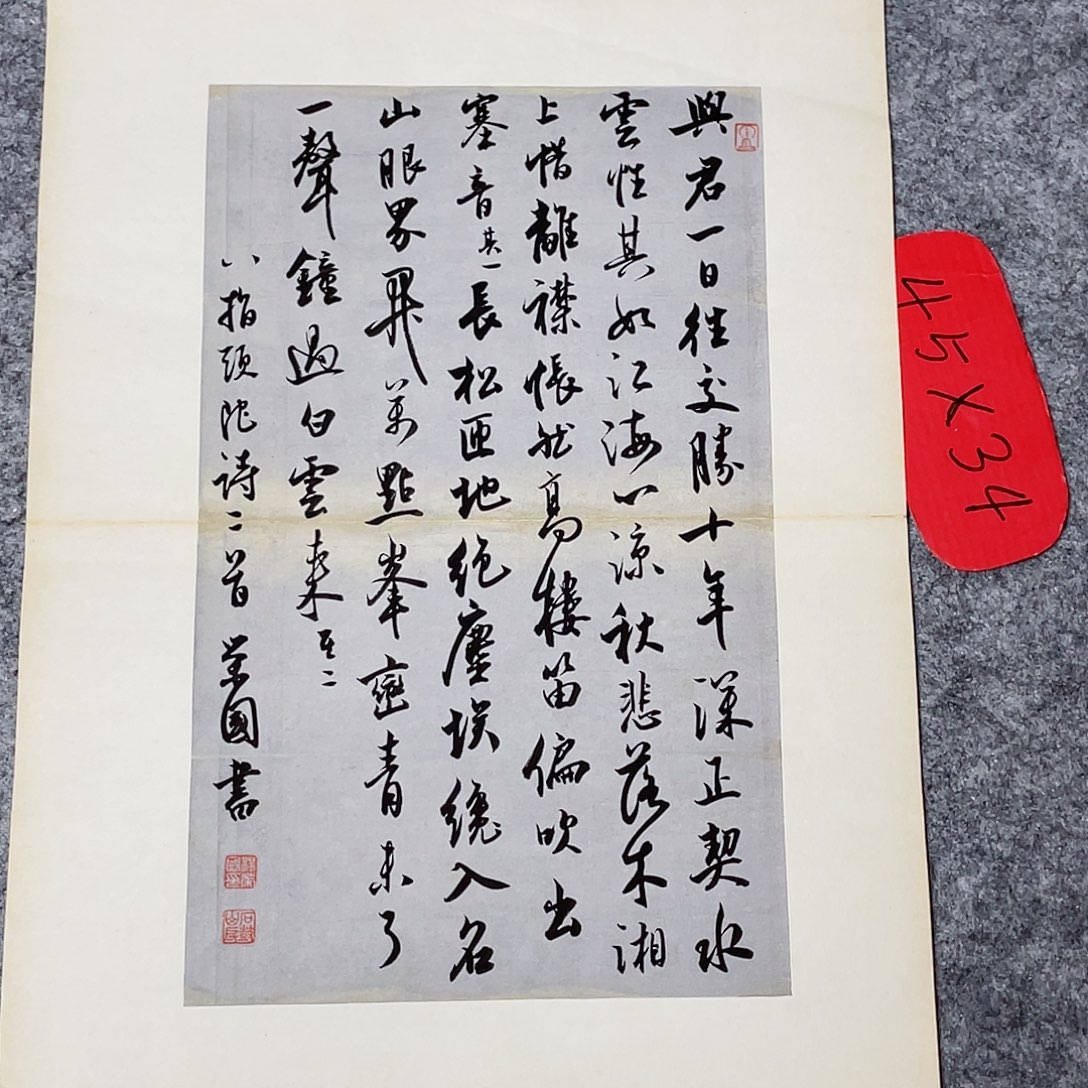 與君一日往交勝十年深正契水
雲性其如江海心涼秋悲落木湘
上惜離襟悵然高樓笛偏吹出
塞音其一長松匝地絕塵埃纔入名
山眼界開萬點峯巒青未了
一聲鐘過白雲來其二
八指頭陀詩二首 國書
45X34